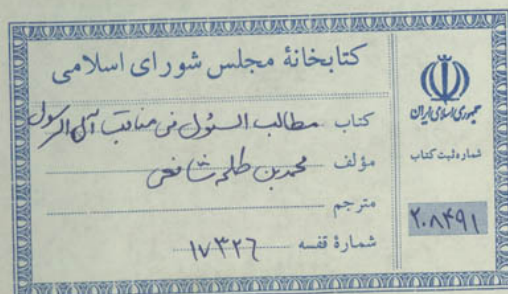 کتابخانهٔ مجلس شورای اسلامی
کتاب مطالب السئول فی مناقب آل الرسول
مؤلف محمد بن طلحه شافعی
مترجم
شمارهٔ قفسه ۱۷۳۲۶
جمهوری اسلامی ایران
شماره ثبت کتاب
۲۰۸۴۹۱